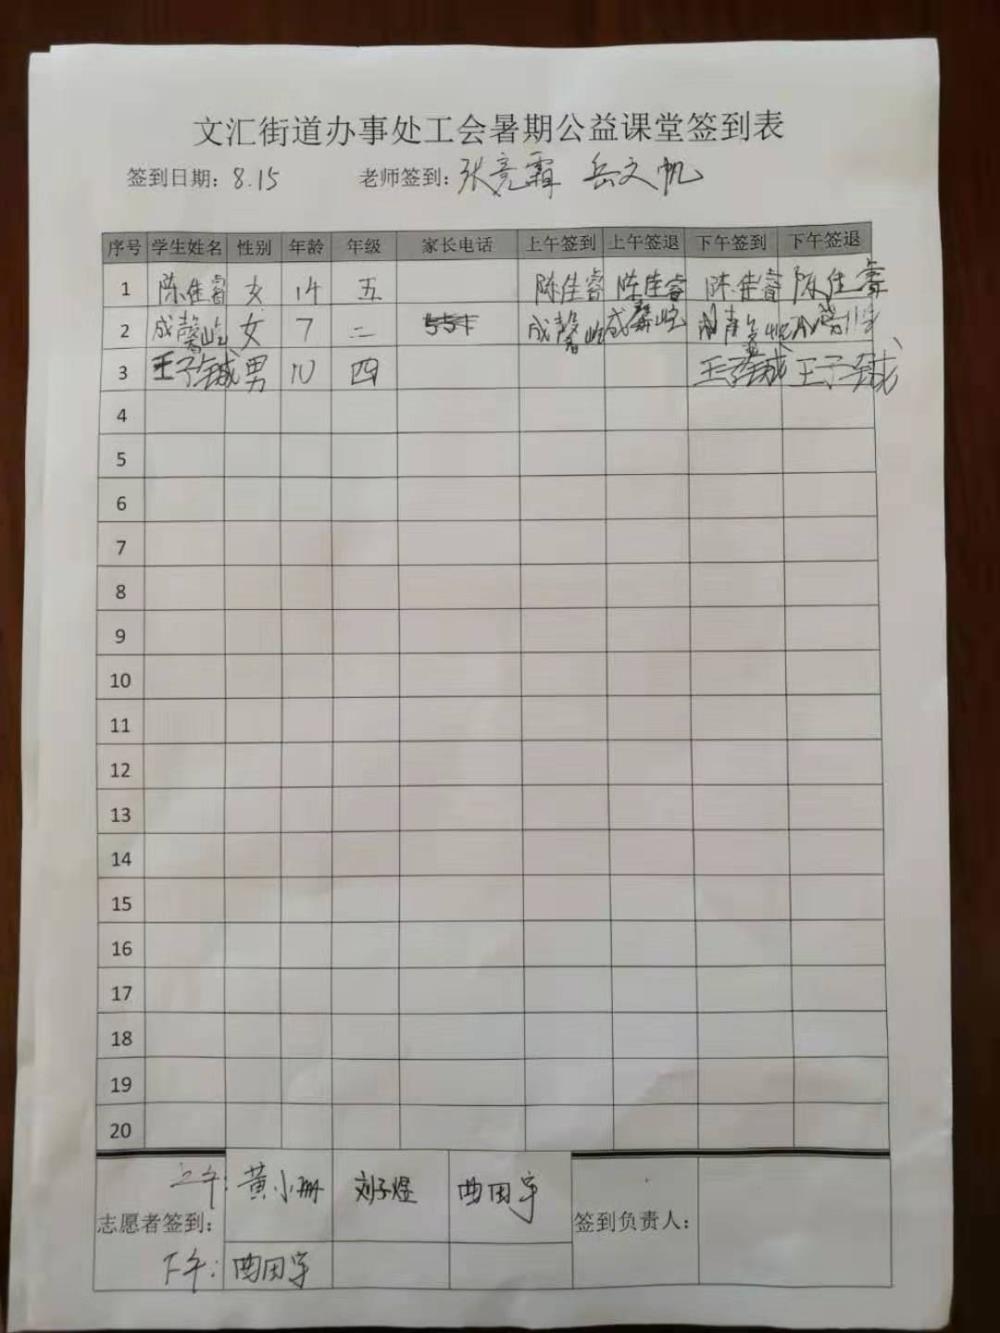 文汇街道办事处工会暑期公益课堂签到表
签到日期：8.15 老师签到：张竞霜 岳文帆
序号 学生姓名 性别 年龄 年级 家长电话 上午签到 上午签退 下午签到 下午签退
1 陈佳睿 女 14 五 陈佳睿 陈佳睿 陈佳睿 陈佳睿
2 成馨屹 女 7 二 成馨屹 成馨屹
3 王子铖 男 10 四 王子铖 王子铖
4
5
6
7
8
9
10
11
12
13
14
15
16
17
18
19
20
上午：黄小珊 刘子煜 曲田宇
志愿者签到： 签到负责人：
下午：曲田宇